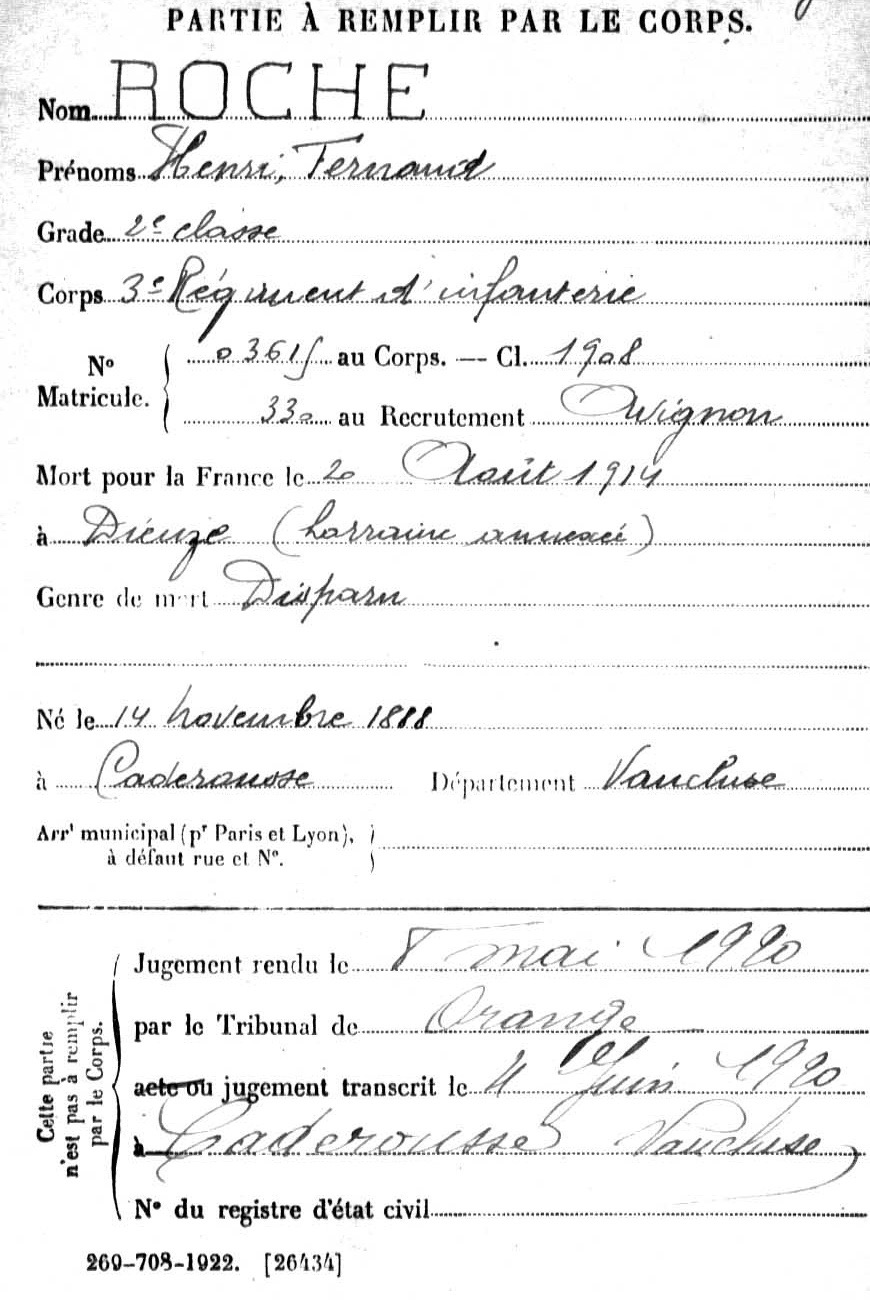 PARTIE À REMPLIR PAR LE CORPS.
Nom ROCHE
Prénoms Henri, Fernand
Grade 2e classe
Corps 3e Régiment d'infanterie
No Matricule. 03615 au Corps. — Cl. 1908
330 au Recrutement Avignon
Mort pour la France le 20 Août 1914
à Dieuze (Lorraine annexée)
Genre de mort Disparu
Né le 14 Novembre 1888
à Caderousse Département Vaucluse
Arrt municipal (pr Paris et Lyon),
à défaut rue et No.
Cette partie n'est pas à remplir par le Corps.
Jugement rendu le 8 mai 1920
par le Tribunal de Orange
acte ou jugement transcrit le 4 Juin 1920
à Caderousse Vaucluse
No du registre d'état civil
269-708-1922. [26434]